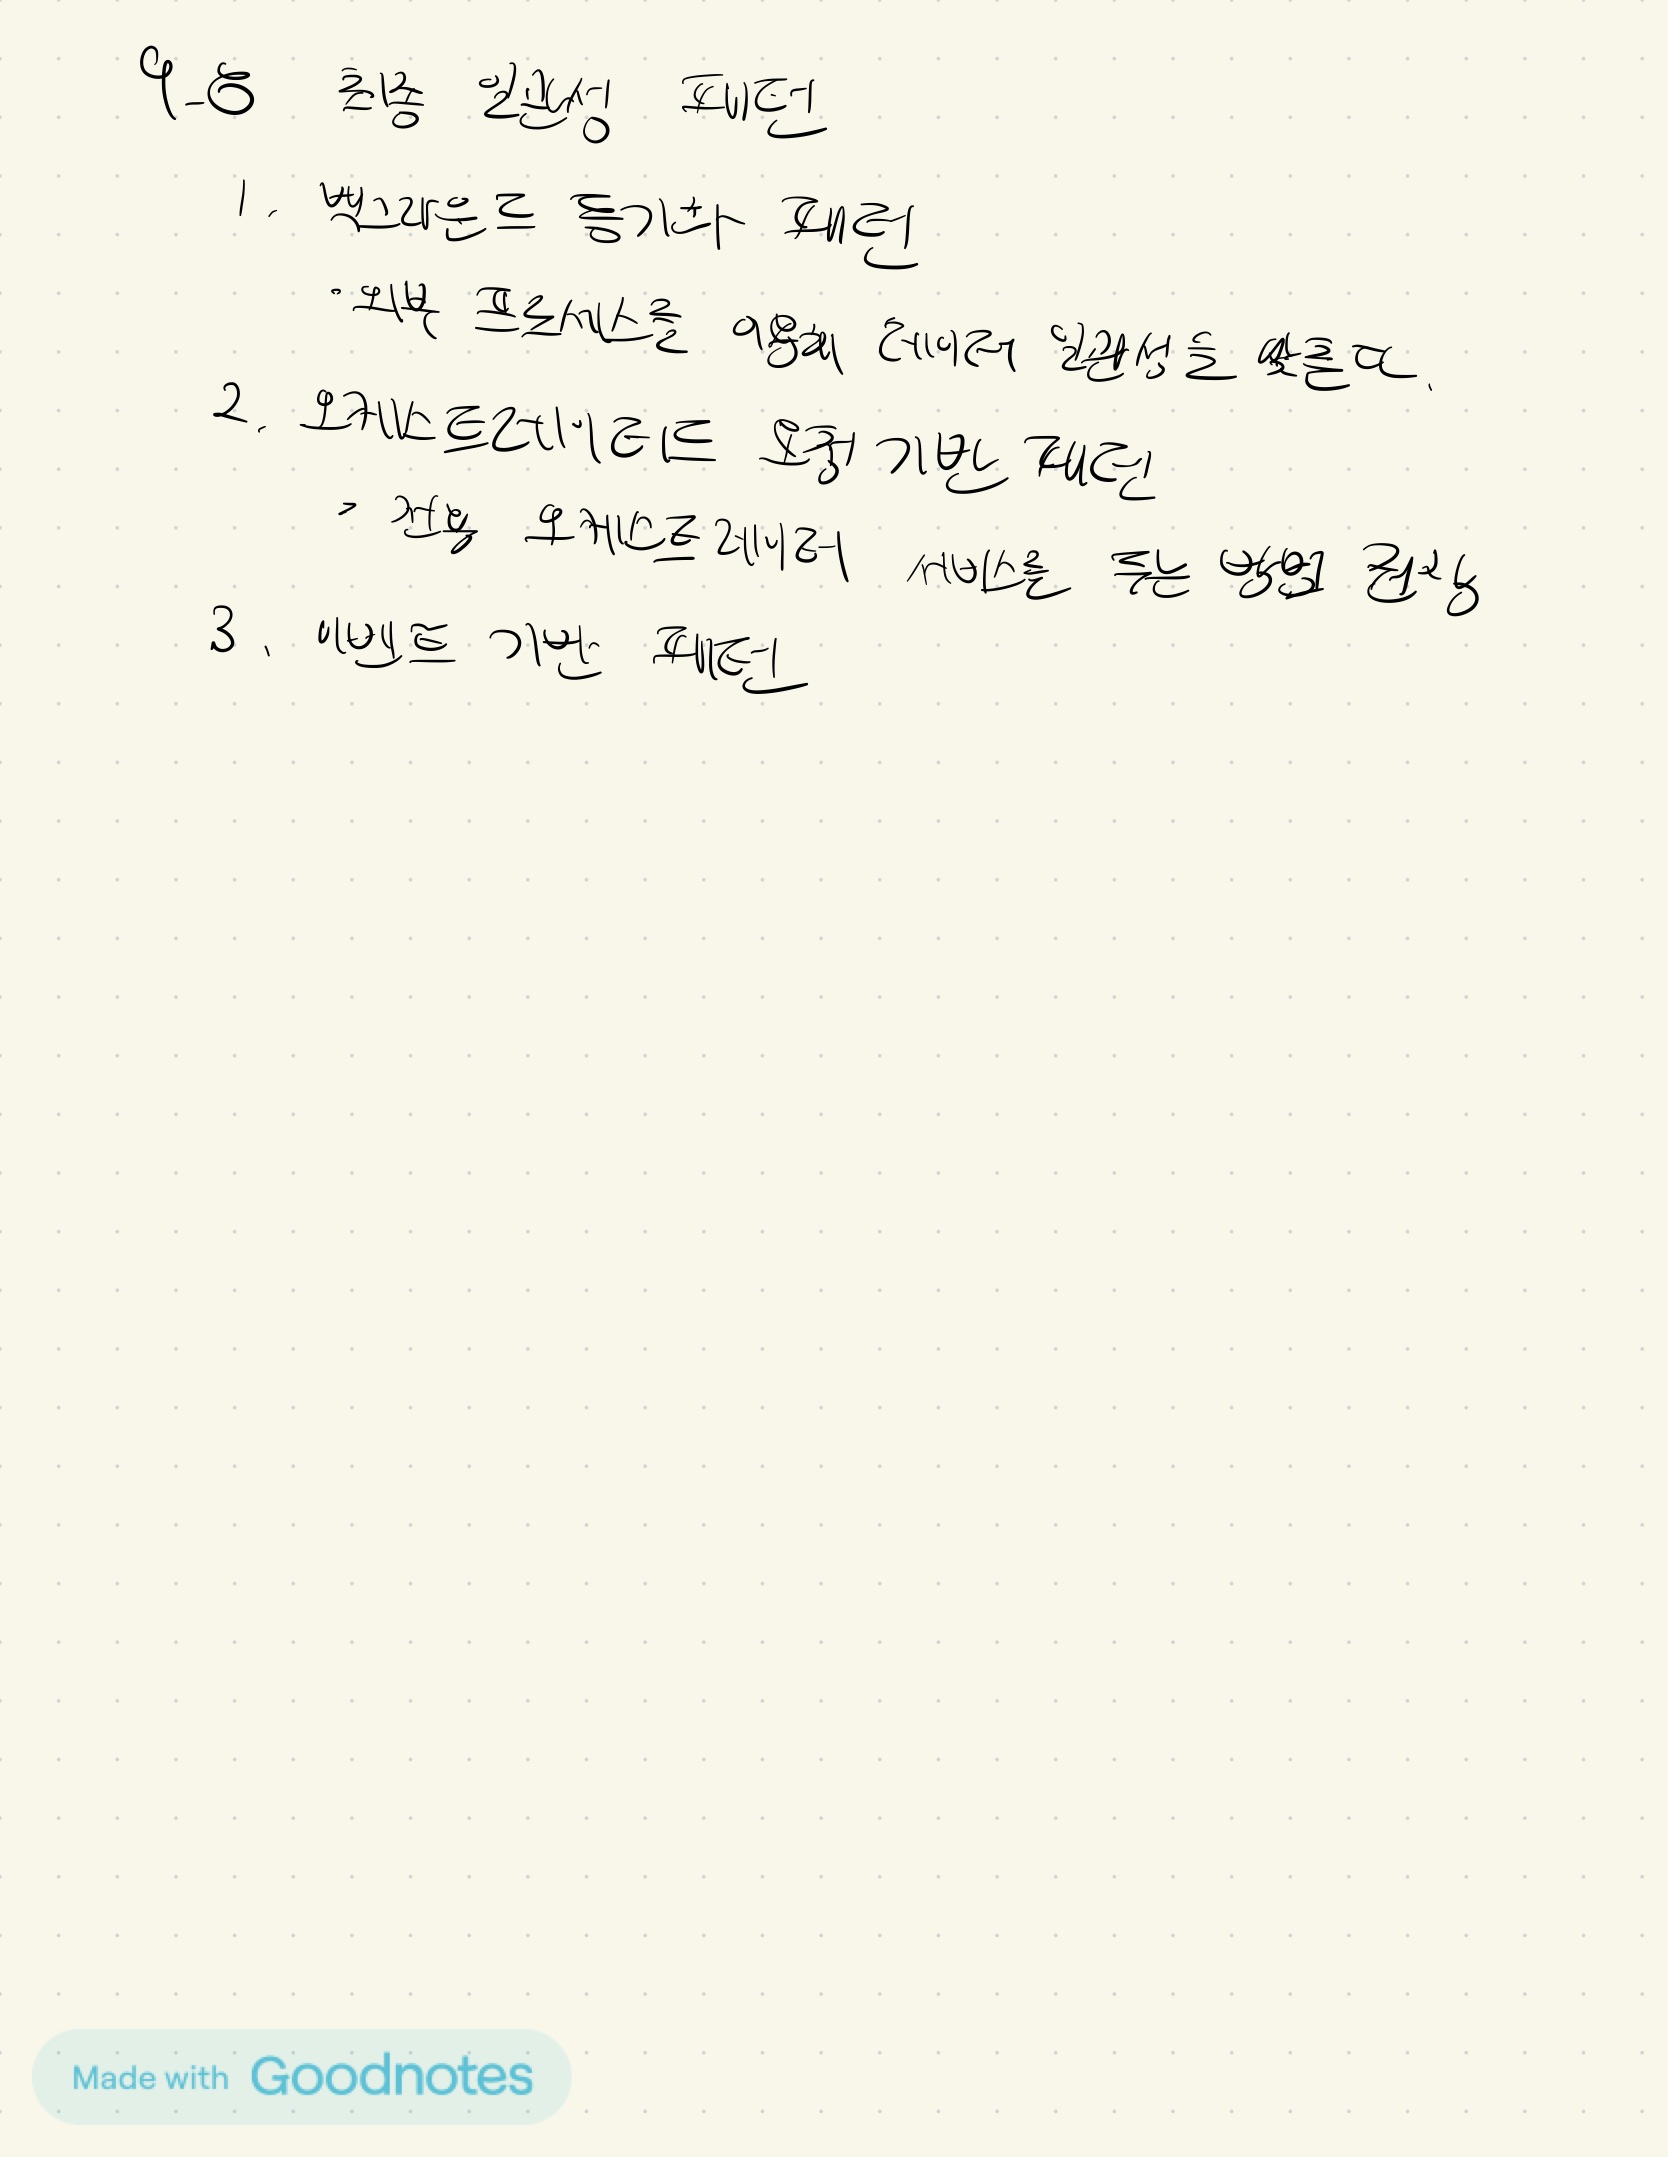 9-8 최종 일관성 패턴
1. 백그라운드 동기화 패턴
· 외부 프로세스를 이용해 데이터 일관성을 맞춘다.
2. 오케스트레이티드 요청 기반 패턴
· 전용 오케스트레이터 서비스를 두는 방법 권장
3. 이벤트 기반 패턴
Made with Goodnotes